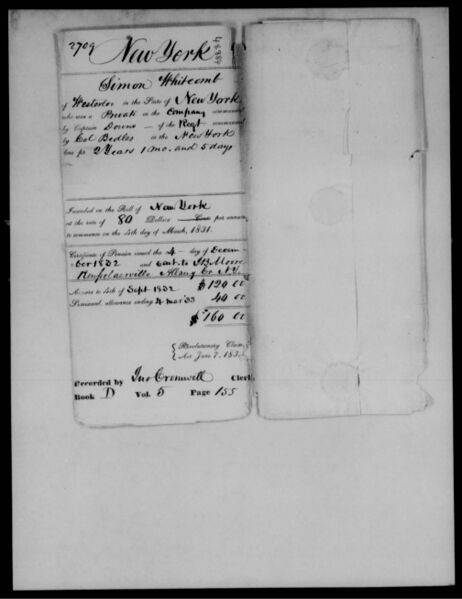 2709
New York
Simon Whitcomb
of Westerlo in the State of New York
who was a Private in the Company commanded
by Captain Downs of the Regt commanded
by Col Bedles in the New York
line for 2 Years 1 mo. and 5 days
Inscribed on the Roll of New York
at the rate of 80 Dollars Cents per annum
to commence on the 4th day of March, 1831.
Certificate of Pension issued the 4 day of Decem-
ber 1832 and sent to Moore
Rensselaerville Albany Co N.Y.
Arrears to 4th of Sept 1832 $120.00
Semi-anl. allowance ending 4 Mar 33 40.00
$160.00
Revolutionary Claim,
Act June 7, 1832
Recorded by Jno Cromwell Clerk
Book D Vol. 5 Page 155